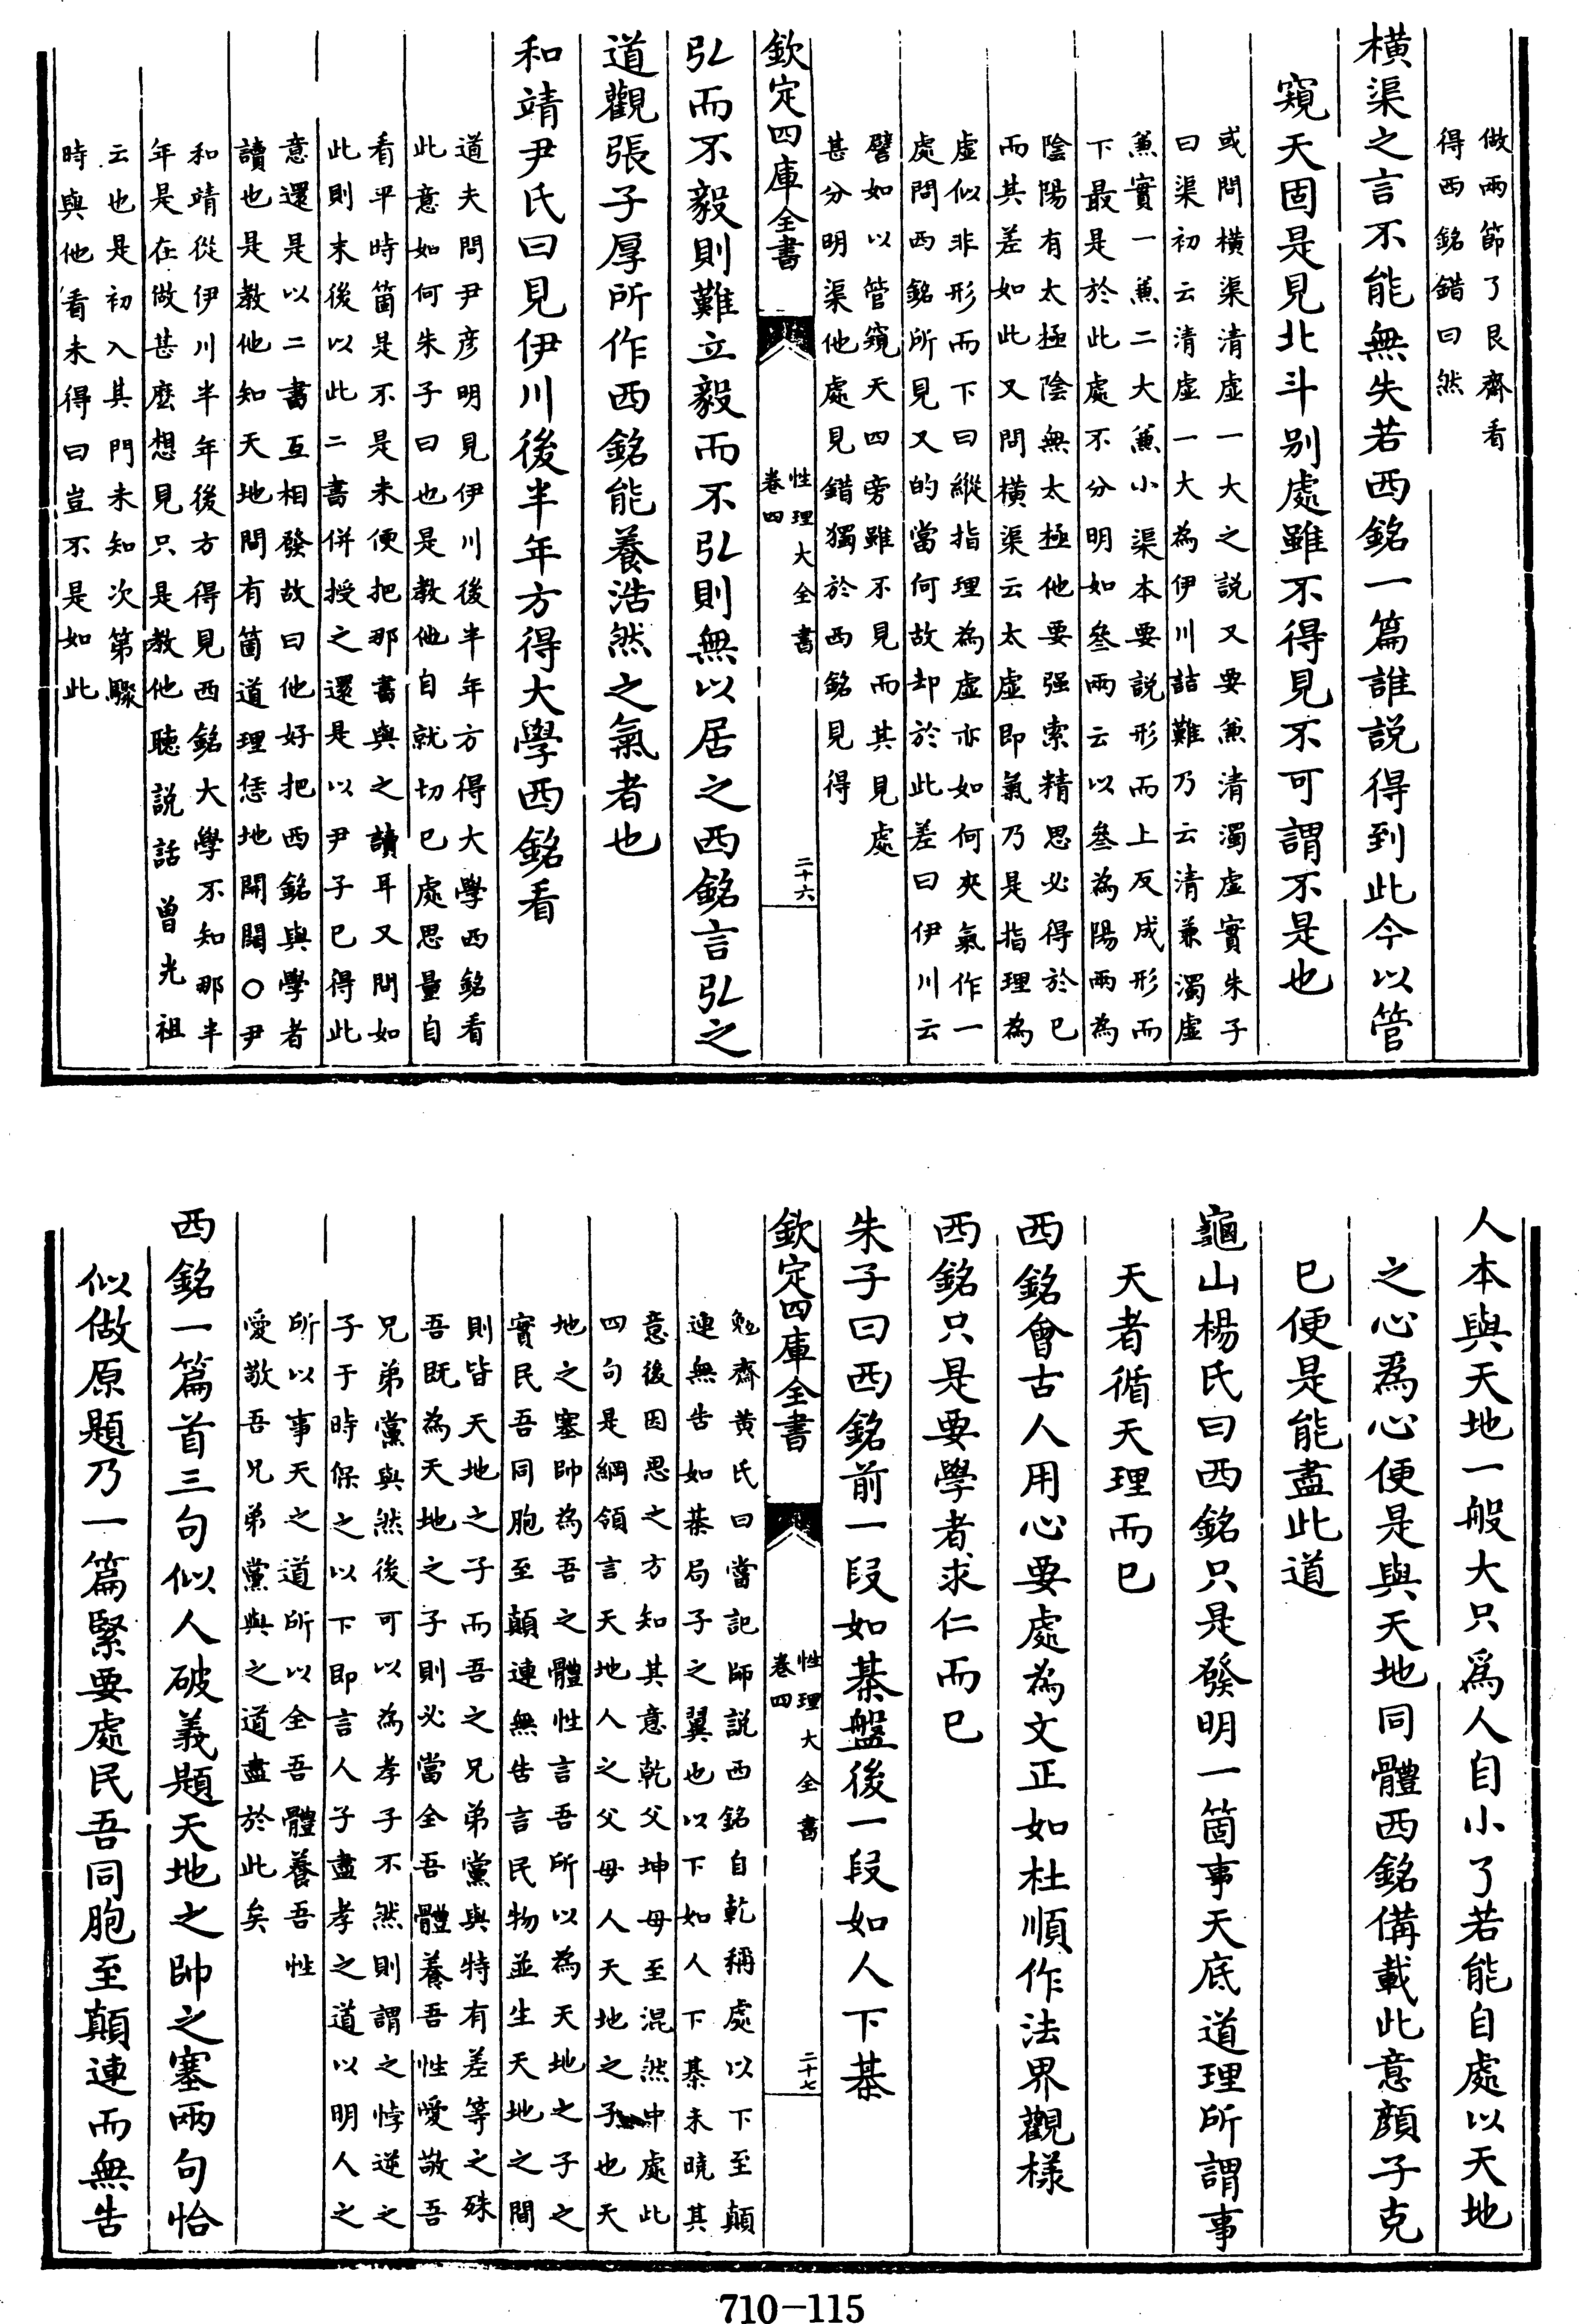 做兩節了艮齋看
得西銘錯曰然
橫渠之言不能無失若西銘一篇誰說得到此今以管
窺天固是見北斗别處雖不得見不可謂不是也
或問橫渠清虚一大之説又要兼清濁虚實朱子
曰渠初云清虚一大為伊川詰難乃云清兼濁虚
兼實一兼二大兼小渠本要説形而上反成形而
下最是於此處不分明如叄兩云以叄為陽兩為
陰陽有太極陰無太極他要强索精思必得於已
而其差如此又問橫渠云太虚即氣乃是指理為
虚似非形而下曰縱指理為虚亦如何夾氣作一
處問西銘所見又的當何故却於此差曰伊川云
譬如以管窺天四旁雖不見而其見處
甚分明渠他處見錯獨於西銘見得
欽定四庫全書
性理大全書
卷四
二十六
弘而不毅則難立毅而不弘則無以居之西銘言弘之
道觀張子厚所作西銘能養浩然之氣者也
和靖尹氏曰見伊川後半年方得大學西銘看
道夫問尹彦明見伊川後半年方得大學西銘看
此意如何朱子曰也是教他自就切已處思量自
看平時箇是不是未便把那書與之讀耳又問如
此則末後以此二書併授之還是以尹子已得此
意還是以二書互相發故曰他好把西銘與學者
讀也是教他知天地間有箇道理恁地開闊○尹
和靖從伊川半年後方得見西銘大學不知那半
年是在做甚麽想見只是教他聽説話曾光祖
云也是初入其門未知次第驟
時與他看未得曰豈不是如此
人本與天地一般大只爲人自小了若能自處以天地
之心爲心便是與天地同體西銘備載此意顔子克
已便是能盡此道
龜山楊氏曰西銘只是發明一箇事天底道理所謂事
天者循天理而已
西銘會古人用心要處為文正如杜順作法界觀樣
西銘只是要學者求仁而已
朱子曰西銘前一段如棊盤後一段如人下棊
欽定四庫全書
性理大全書
卷四
二十七
勉齋黄氏曰當記師説西銘自乾稱處以下至顛
連無告如棊局子之翼也以下如人下棊未曉其
意後因思之方知其意乾父坤母至混然中處此
四句是綱領言天地人之父母人天地之子也天
地之塞帥為吾之體性言吾所以為天地之子之
實民吾同胞至顛連無告言民物並生天地之間
則皆天地之子而吾之兄弟黨與特有差等之殊
吾既為天地之子則必當全吾體養吾性愛敬吾
兄弟黨與然後可以為孝子不然則謂之悖逆之
子于時保之以下即言人子盡孝之道以明人之
所以事天之道所以全吾體養吾性
愛敬吾兄弟黨與之道盡於此矣
西銘一篇首三句似人破義題天地之帥之塞兩句恰
似做原題乃一篇緊要處民吾同胞至顛連而無告
710-115